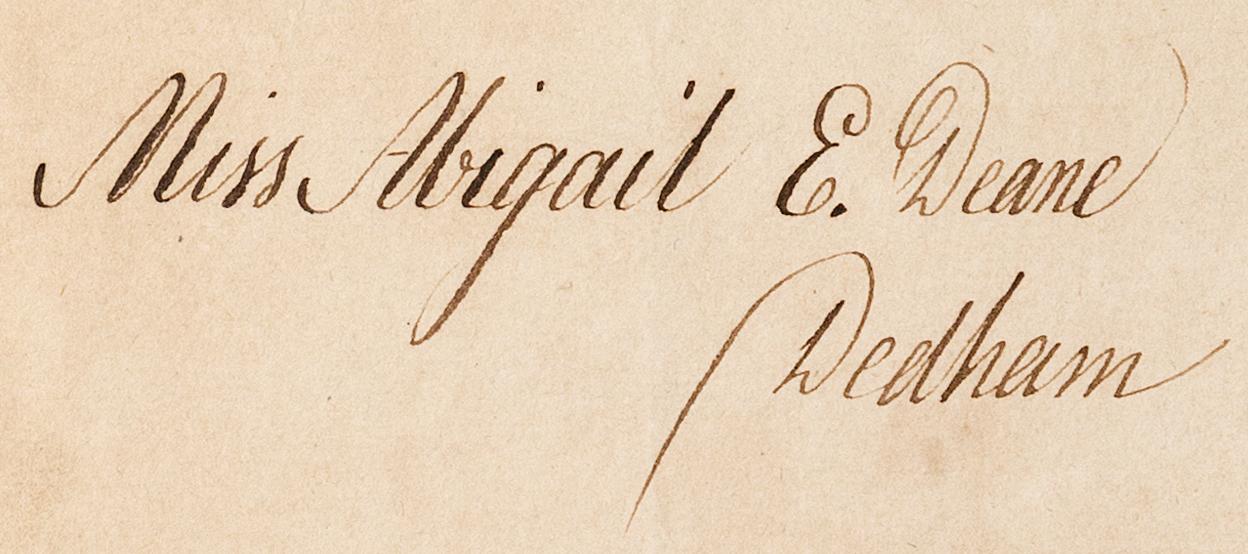 Miss Abigail E. Deane
Dedham